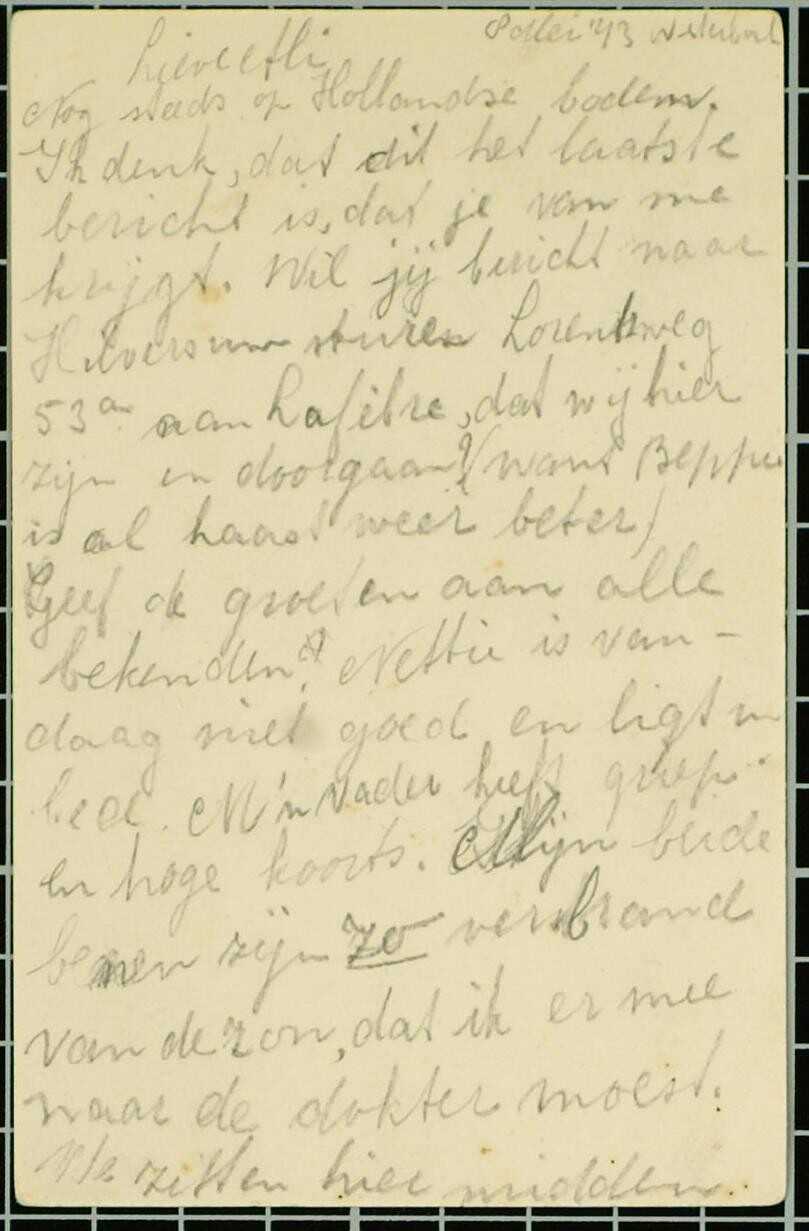 8 Mei '43 Westerbork
Lieve Etli
Nog steeds op Hollandse bodem.
Ik denk, dat dit het laatste
bericht is, dat je van me
krijgt. Wil jij bericht naar
Hilversum sturen Lorentzweg
53a aan Lafèbre, dat wij hier
zijn en doorgaan? (want Beppie
is al haast weer beter)
Geef de groeten aan alle
bekenden? Nettie is van-
daag niet goed en ligt in
bed. M'n Vader heeft griep
en hoge koorts. Mijn beide
benen zijn zo verbrand
van de zon, dat ik er mee
naar de dokter moest.
We zitten hier midden